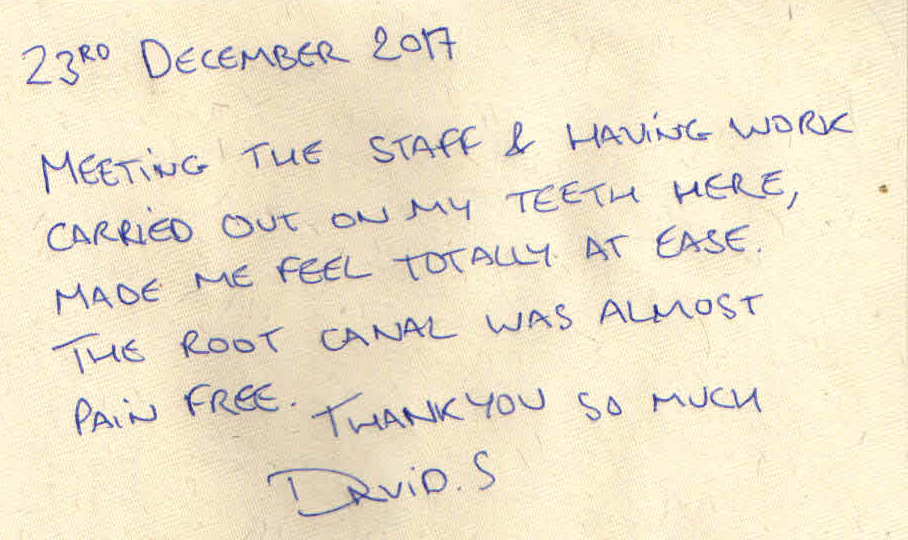 23RD DECEMBER 2017
MEETING THE STAFF & HAVING WORK
CARRIED OUT ON MY TEETH HERE,
MADE ME FEEL TOTALLY AT EASE.
THE ROOT CANAL WAS ALMOST
PAIN FREE. THANKYOU SO MUCH
DAVID.S